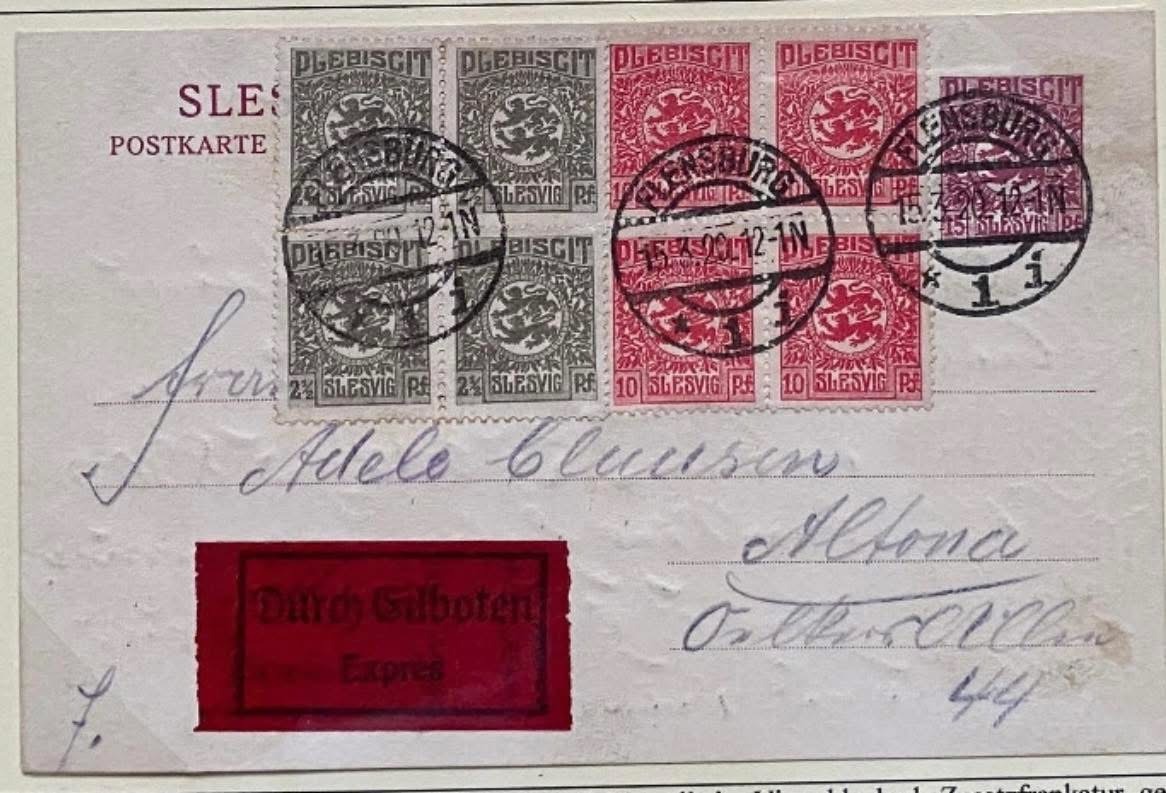 SLES
POSTKARTE
PLEBISCIT PLEBISCIT PLEBISCIT PLEBISCIT PLEBISCIT
SLESVIG SLESVIG SLESVIG SLESVIG 15 SLESVIG Pf.
FLENSBURG FLENSBURG FLENSBURG
12-1N 15.3.20.12-1N 15.3.20.12-1N
* 1 i * 1 i * 1 i
PLEBISCIT PLEBISCIT PLEBISCIT PLEBISCIT
2½ SLESVIG Pf. 2½ SLESVIG Pf. 10 SLESVIG Pf. 10 SLESVIG Pf.
Adele Clausen
Altona
Oelkers Allee
44
Durch Eilboten
Expres
7.
Zusatzfrankatur